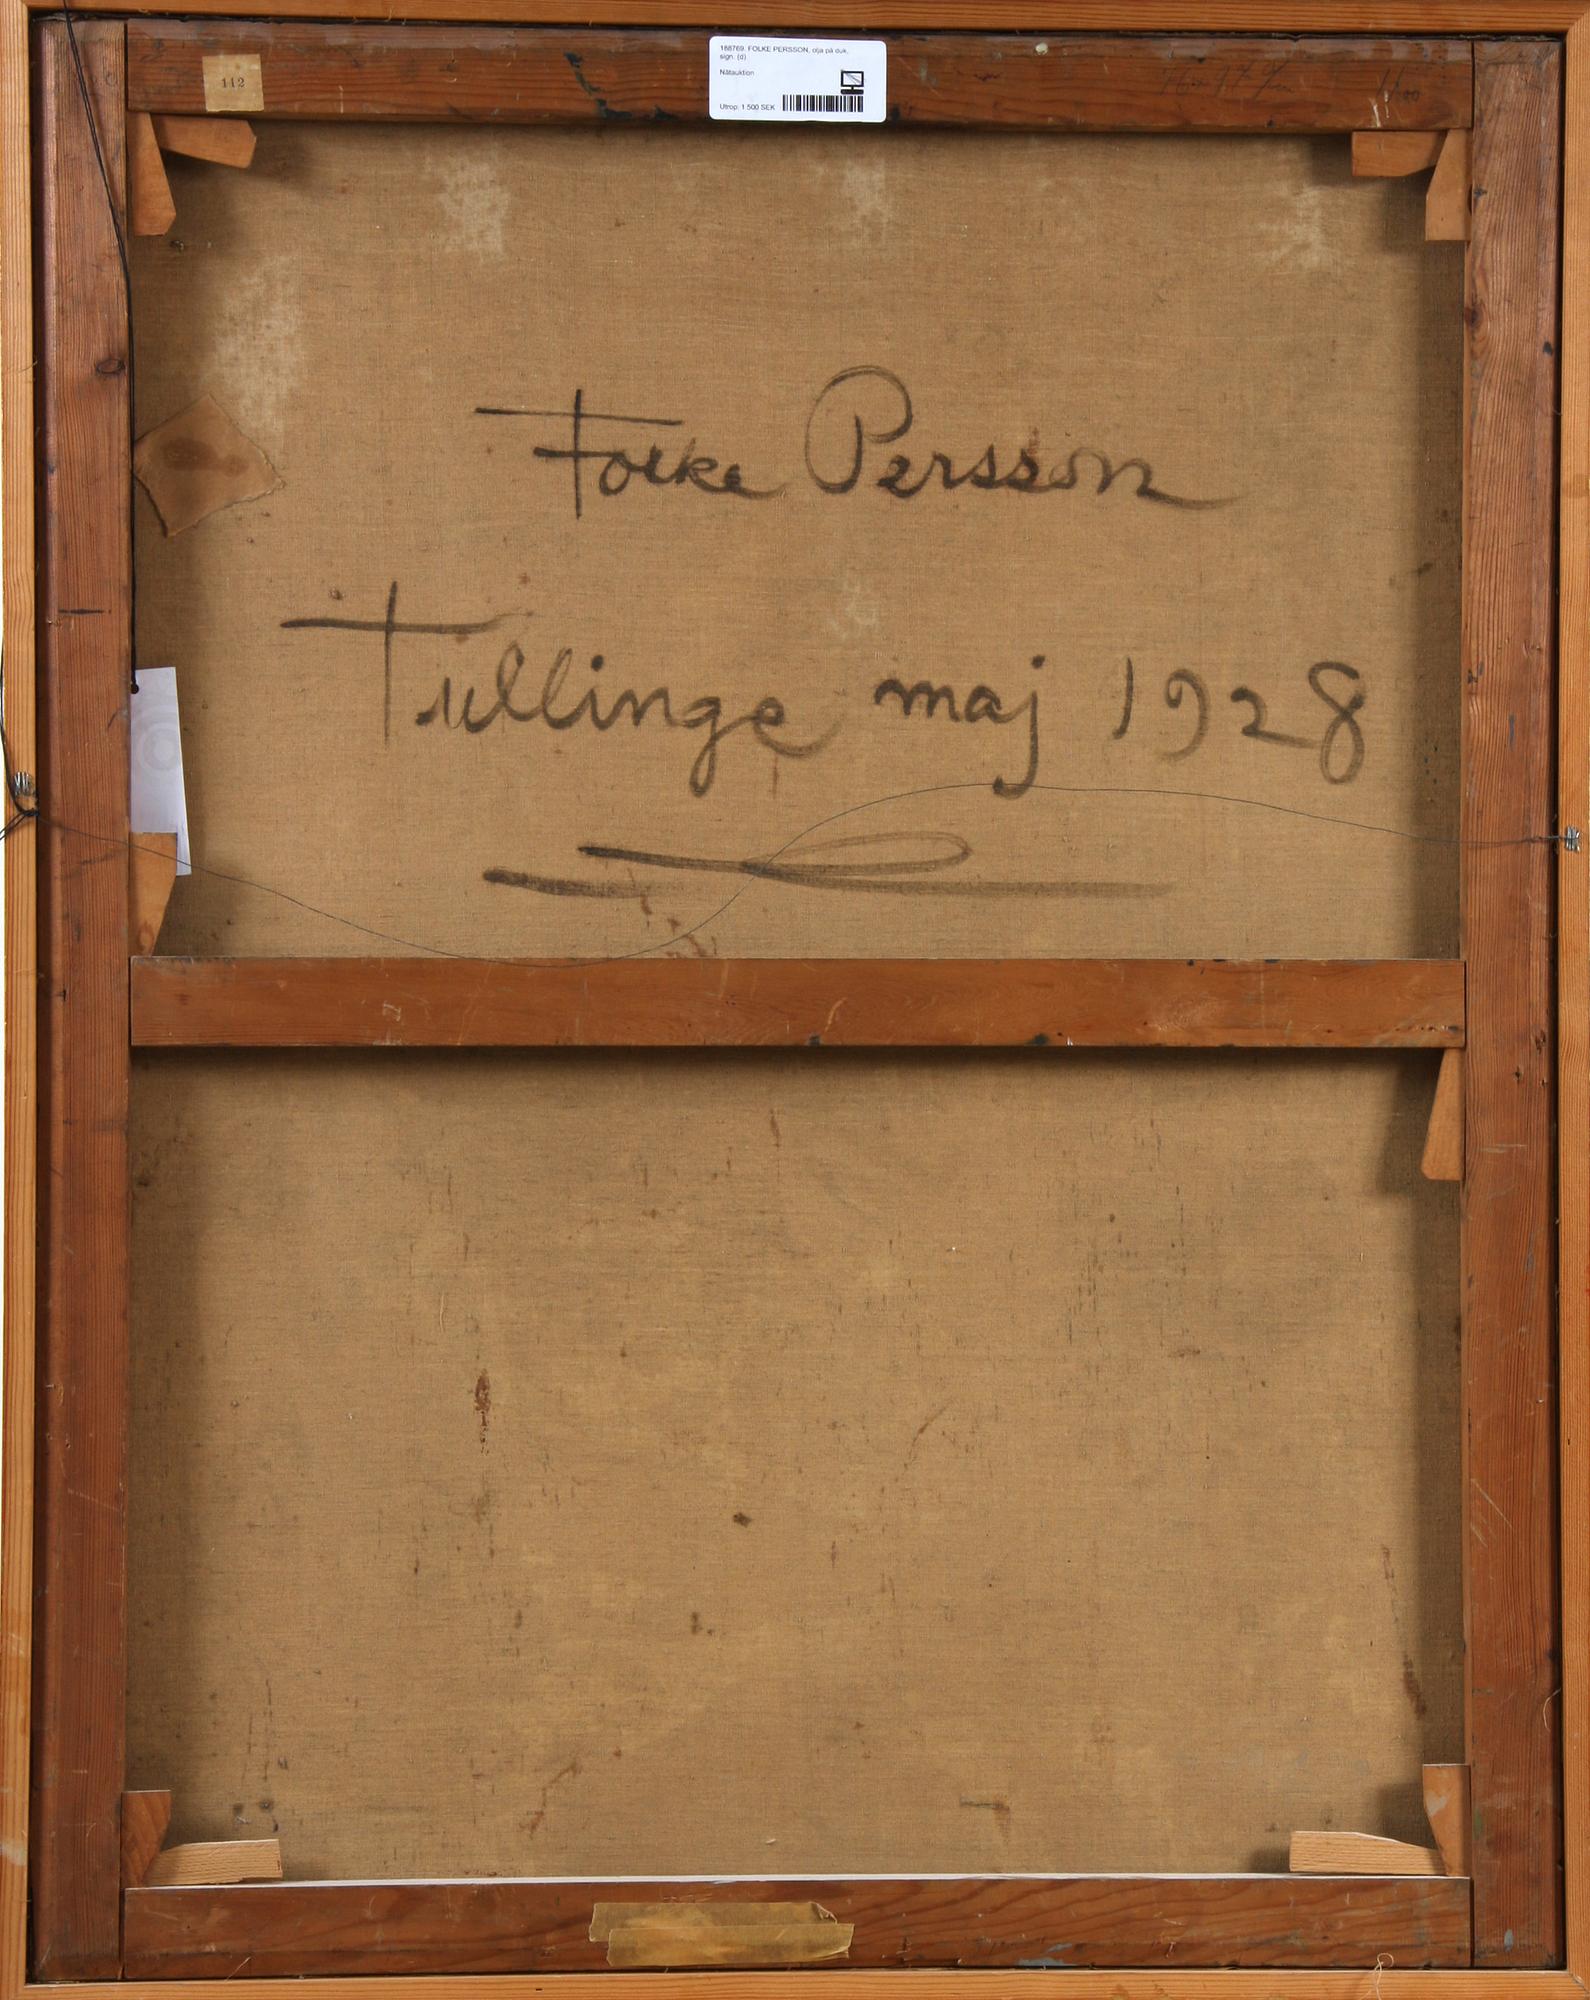 112
188769. FOLKE PERSSON, olja på duk,
sign. (d)
Nätauktion
Utrop: 1 500 SEK
Folke Persson
Tullinge maj 1928